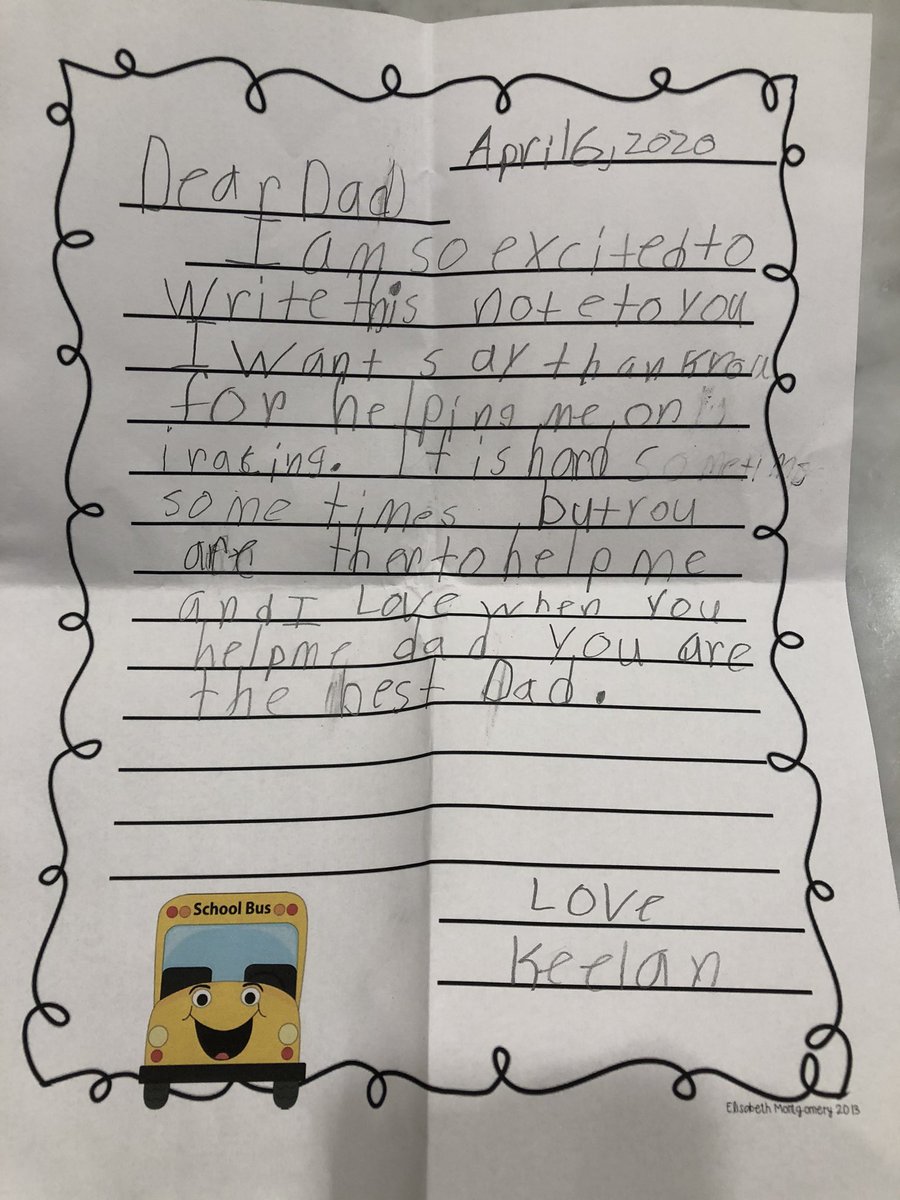 April 6, 2020
Dear Dad
I am so excited to
Write this note to you
I want say thank you
for helping me on
iraking. It is hard sometims
some times but you
are ther to help me
and I Love when you
help me dad you are
the best Dad.
Love
Keelan
School Bus
Elisabeth Montgomery 2013